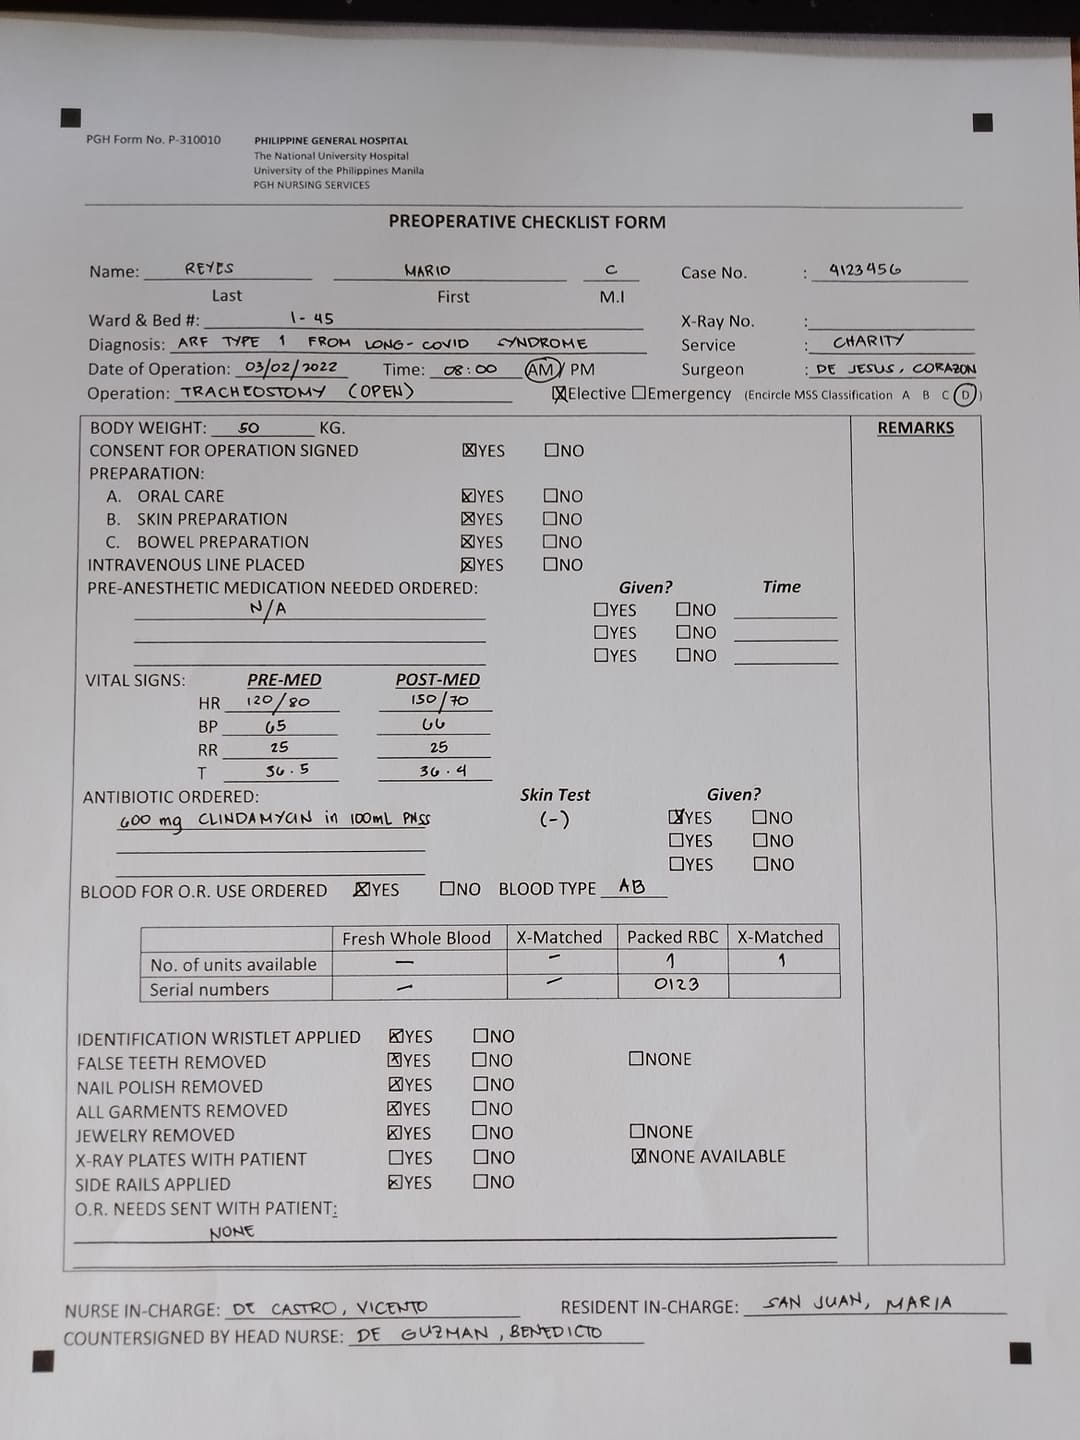 PGH Form No. P-310010 PHILIPPINE GENERAL HOSPITAL
The National University Hospital
University of the Philippines Manila
PGH NURSING SERVICES
PREOPERATIVE CHECKLIST FORM
Name: REYES MARIO C Case No. : 4123456
Last First M.I
Ward & Bed #: 1-45 X-Ray No. :
Diagnosis: ARF TYPE 1 FROM LONG-COVID SYNDROME Service : CHARITY
Date of Operation: 03/02/2022 Time: 08:00 AM/PM Surgeon : DE JESUS, CORAZON
Operation: TRACHEOSTOMY (OPEN) ☒Elective ☐Emergency (Encircle MSS Classification A B C D)
BODY WEIGHT: 50 KG. REMARKS
CONSENT FOR OPERATION SIGNED ☒YES ☐NO
PREPARATION:
A. ORAL CARE ☒YES ☐NO
B. SKIN PREPARATION ☒YES ☐NO
C. BOWEL PREPARATION ☒YES ☐NO
INTRAVENOUS LINE PLACED ☒YES ☐NO
PRE-ANESTHETIC MEDICATION NEEDED ORDERED: Given? Time
N/A ☐YES ☐NO
☐YES ☐NO
☐YES ☐NO
VITAL SIGNS: PRE-MED POST-MED
HR 120/80 130/70
BP 65 66
RR 25 25
T 36.5 36.4
ANTIBIOTIC ORDERED: Skin Test Given?
600 mg CLINDAMYCIN in 100mL PNSS (-) ☒YES ☐NO
☐YES ☐NO
☐YES ☐NO
BLOOD FOR O.R. USE ORDERED ☒YES ☐NO BLOOD TYPE AB
Fresh Whole Blood X-Matched Packed RBC X-Matched
No. of units available — — 1 1
Serial numbers — — 0123
IDENTIFICATION WRISTLET APPLIED ☒YES ☐NO
FALSE TEETH REMOVED ☒YES ☐NO ☐NONE
NAIL POLISH REMOVED ☒YES ☐NO
ALL GARMENTS REMOVED ☒YES ☐NO
JEWELRY REMOVED ☒YES ☐NO ☐NONE
X-RAY PLATES WITH PATIENT ☐YES ☐NO ☒NONE AVAILABLE
SIDE RAILS APPLIED ☒YES ☐NO
O.R. NEEDS SENT WITH PATIENT:
NONE
NURSE IN-CHARGE: DE CASTRO, VICENTO RESIDENT IN-CHARGE: SAN JUAN, MARIA
COUNTERSIGNED BY HEAD NURSE: DE GUZMAN, BENEDICTO